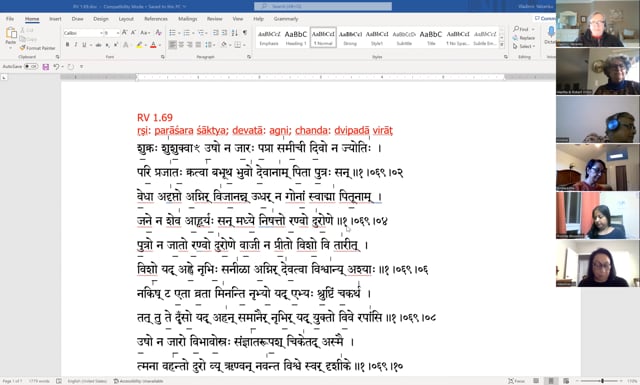 RV 1.69.doc - Compatibility Mode - Saved to this PC
Search
Vladimir Yatsenko
File Home Insert Draw Design Layout References Mailings Review View Help Grammarly
Comments
Cut
Copy
Format Painter
Calibri
Emphasis
Heading 1
1 Normal
Strong
Style1
Subtitle
Title
1 No Spac...
Find
Replace
Select
Clipboard
Font
Paragraph
Styles
Editing
AutoSave
RV 1.69
ṛṣi: parāśara śāktya; devatā: agni; chanda: dvipadā virāṭ
शुक्रः शुशुक्वाꣳ उषो न जारः पप्रा समीची दिवो न ज्योतिः ।
परि प्रजातः क्रत्वा बभूथ भुवो देवानाम् पिता पुत्रः सन् ॥१।०६९।०२
वेधा अदृप्तो अग्निर् विजानन्न् ऊधर् न गोनां स्वाद्मा पितूनाम् ।
जने न शेव आहूर्यः सन् मध्ये निषत्तो रण्वो दुरोणे ॥१।०६९।०४
पुत्रो न जातो रण्वो दुरोणे वाजी न प्रीतो विशो वि तारीत् ।
विशो यद् अह्वे नृभिः सनीळा अग्निर् देवत्वा विश्वान्य् अश्याः ॥१।०६९।०६
नकिष् ट एता व्रता मिनन्ति नृभ्यो यद् एभ्यः श्रुष्टिं चकर्थ ।
तत् तु ते दꣳसो यद् अहन् समानैर् नृभिर् यद् युक्तो विवे रपांसि ॥१।०६९।०८
उषो न जारो विभावोस्रः संज्ञातरूपश् चिकेतद् अस्मै ।
त्मना वहन्तो दुरो व्य् ऋण्वन् नवन्त विश्वे स्वर् दृशीके ॥१।०६९।१०
Page 1 of 1 1779 words English (United States) Accessibility: Unavailable